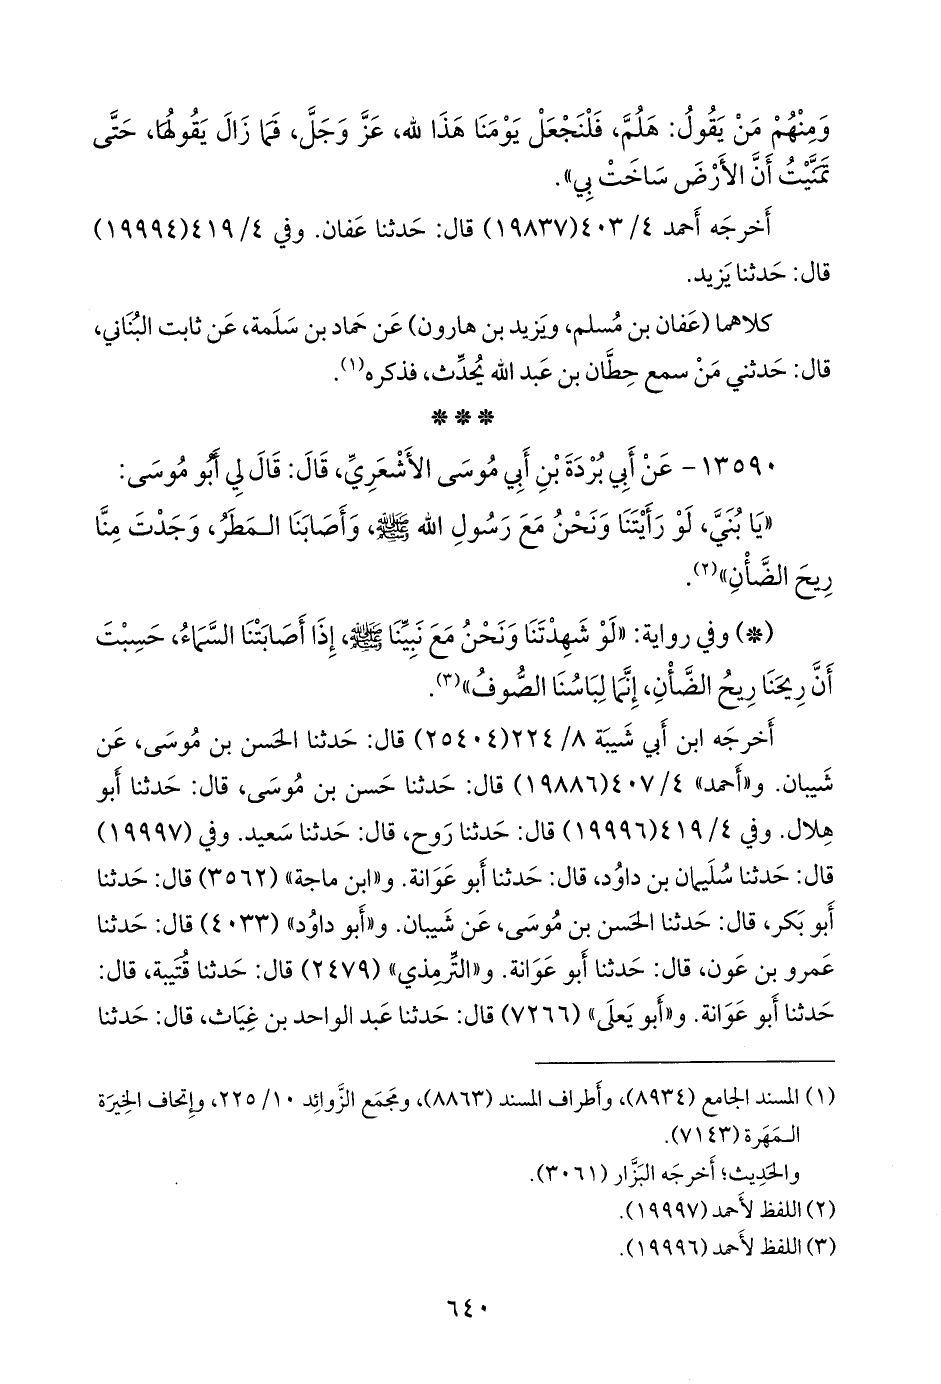 وَمِنْهُمْ مَنْ يَقُولُ: هَلُمَّ، فَلْنَجْعَلْ يَوْمَنَا هَذَا لله، عَزَّ وَجَلَّ، فَمَا زَالَ يَقُولُهَا، حَتَّى
تَمَنَّيْتُ أَنَّ الأَرْضَ سَاخَتْ بِي».
أَخرجَه أَحمد ٤/ ٤٠٣(١٩٨٣٧) قال: حَدثنا عَفان. وفي ٤/ ٤١٩(١٩٩٩٤)
قال: حَدثنا يَزيد.
كلاهما (عَفان بن مُسلم، ويَزيد بن هارون) عَن حَماد بن سَلَمة، عَن ثابت البُنَاني،
قال: حَدثني مَنْ سمع حِطَّان بن عَبد الله يُحدِّث، فذكره(١).
***
١٣٥٩٠- عَنْ أَبِي بُرْدَةَ بْنِ أَبِي مُوسَى الأَشْعَرِيِّ، قَالَ: قَالَ لِي أَبُو مُوسَى:
«يَا بُنَيَّ، لَوْ رَأَيْتَنَا وَنَحْنُ مَعَ رَسُولِ الله ﷺ، وَأَصَابَنَا الـمَطَرُ، وَجَدْتَ مِنَّا
رِيحَ الضَّأْنِ»(٢).
(*) وفي رواية: «لَوْ شَهِدْتَنَا وَنَحْنُ مَعَ نَبِيِّنَا ﷺ، إِذَا أَصَابَتْنَا السَّمَاءُ، حَسِبْتَ
أَنَّ رِيحَنَا رِيحُ الضَّأْنِ، إِنَّمَا لِبَاسُنَا الصُّوفُ»(٣).
أَخرجَه ابن أَبي شَيبَة ٨/ ٢٢٤(٢٥٤٠٤) قال: حَدثنا الحَسن بن مُوسَى، عَن
شَيبان. و«أَحمد» ٤/ ٤٠٧(١٩٨٨٦) قال: حَدثنا حَسن بن مُوسَى، قال: حَدثنا أَبو
هِلال. وفي ٤/ ٤١٩(١٩٩٩٦) قال: حَدثنا رَوح، قال: حَدثنا سَعيد. وفي (١٩٩٩٧)
قال: حَدثنا سُلَيمان بن داوُد، قال: حَدثنا أَبو عَوَانة. و«ابن ماجة» (٣٥٦٢) قال: حَدثنا
أَبو بَكر، قال: حَدثنا الحَسن بن مُوسَى، عَن شَيبان. و«أَبو داوُد» (٤٠٣٣) قال: حَدثنا
عَمرو بن عَون، قال: حَدثنا أَبو عَوَانة. و«التِّرمِذي» (٢٤٧٩) قال: حَدثنا قُتَيبة، قال:
حَدثنا أَبو عَوَانة. و«أَبو يَعلَى» (٧٢٦٦) قال: حَدثنا عَبد الواحد بن غِيَاث، قال: حَدثنا
(١) المسند الجامع (٨٩٣٤)، وأَطراف المسند (٨٨٦٣)، ومَجمَع الزَّوائِد ١٠/ ٢٢٥، وإِتحاف الخِيرَة
الـمَهَرة (٧١٤٣).
والحَدِيث؛ أَخرجَه البَزَّار (٣٠٦١).
(٢) اللفظ لأَحمد (١٩٩٩٧).
(٣) اللفظ لأَحمد (١٩٩٩٦).
٦٤٠